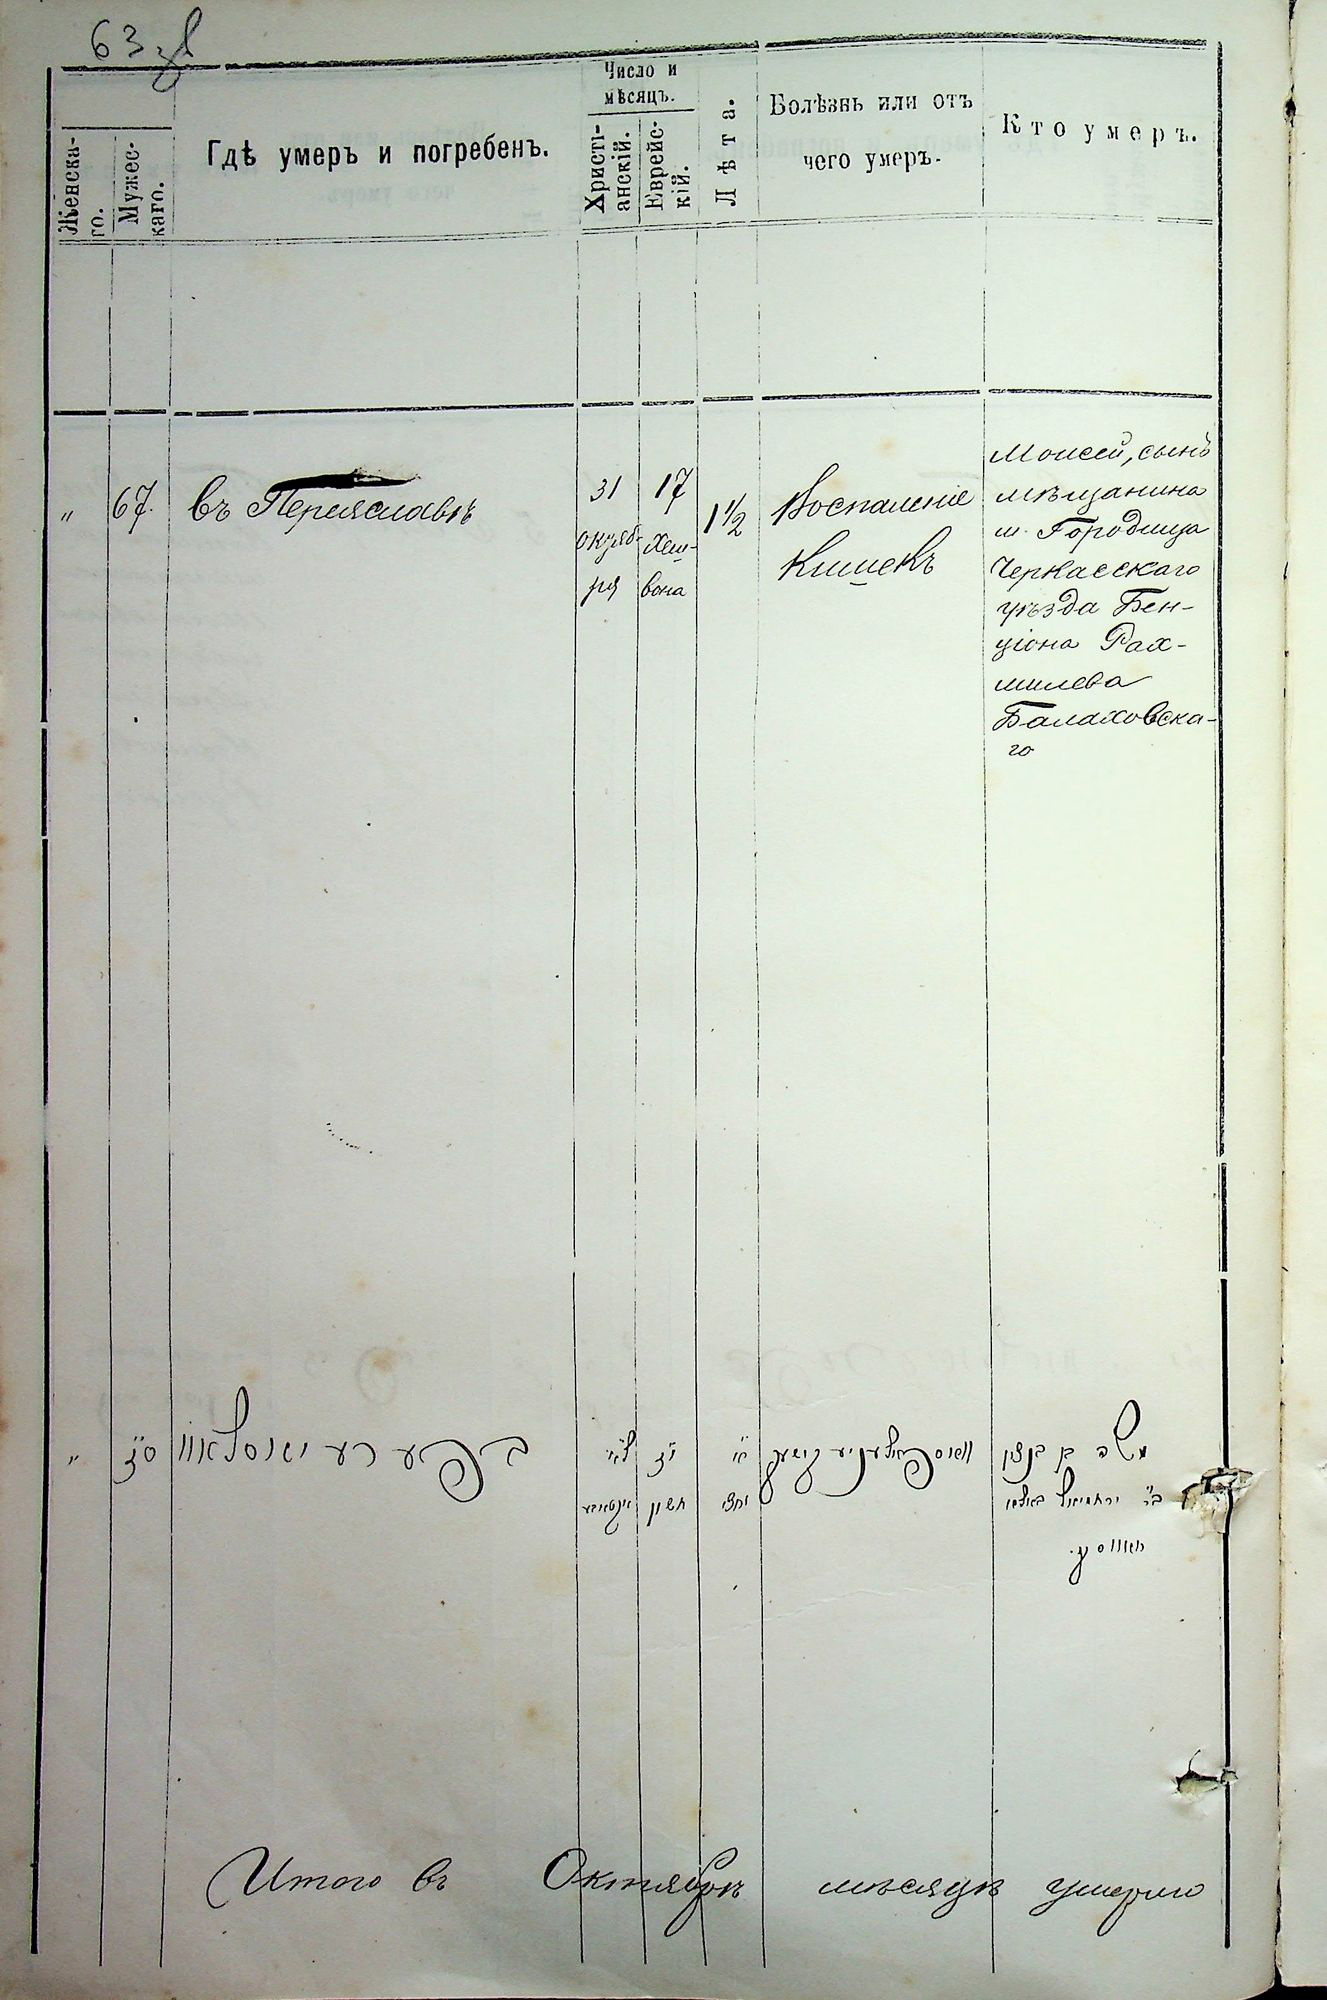 63 зв
Женска-
го.
Мужес-
каго.
Гдѣ умеръ и погребенъ.
Число и
мѣсяцъ.
Христі-
анскій.
Еврейс-
кій.
Лѣта.
Болѣзнь или отъ
чего умеръ.
Кто умеръ.
"
67.
въ Переяславѣ
31
октяб-
ря
17
Хеш-
вона
1 1/2
Воспаленіе
кишекъ
Моисей, сынъ
мѣщанина
м. Городища
Черкасскаго
уѣзда Бен-
ціона Рах-
милева
Балаховска-
го
"
ס"ז
ל"א
י"ז
חשון
א'
וחצי
משה בן בנציון
ב"ר ירחמיאל באלא
חאווסקי
Итого въ Октябрѣ мѣсяцѣ умерло